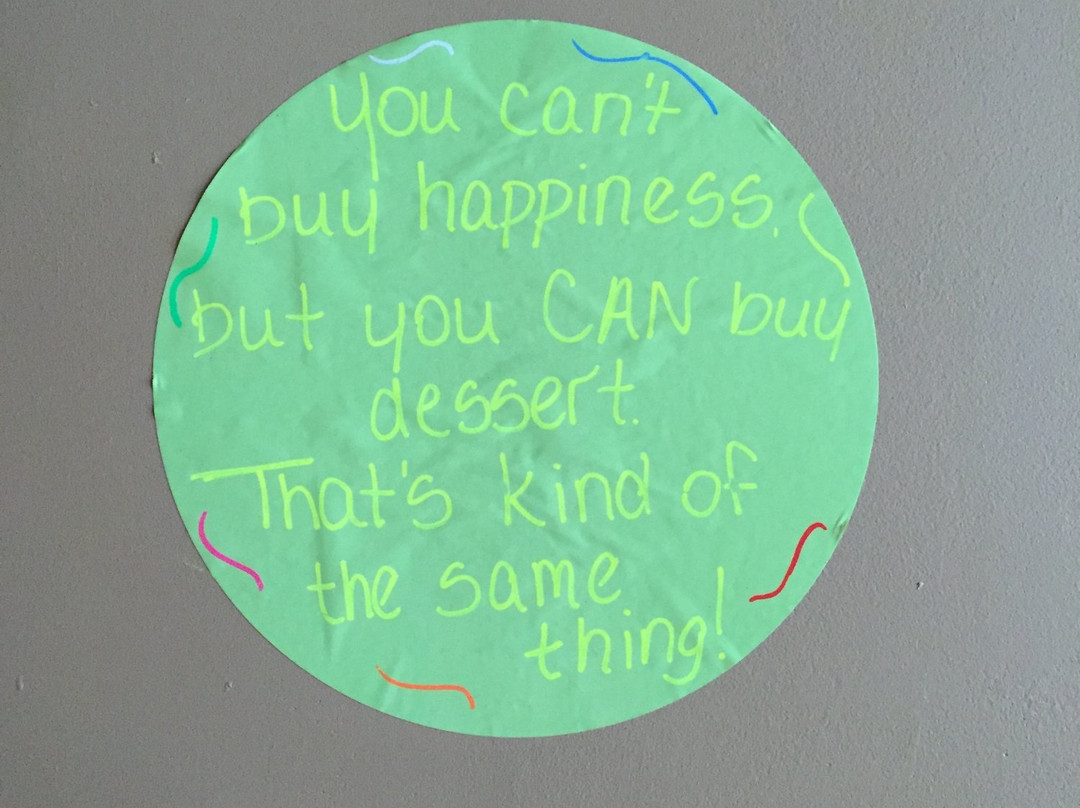 you can't
buy happiness,
but you CAN buy
dessert.
That's kind of
the same
thing!